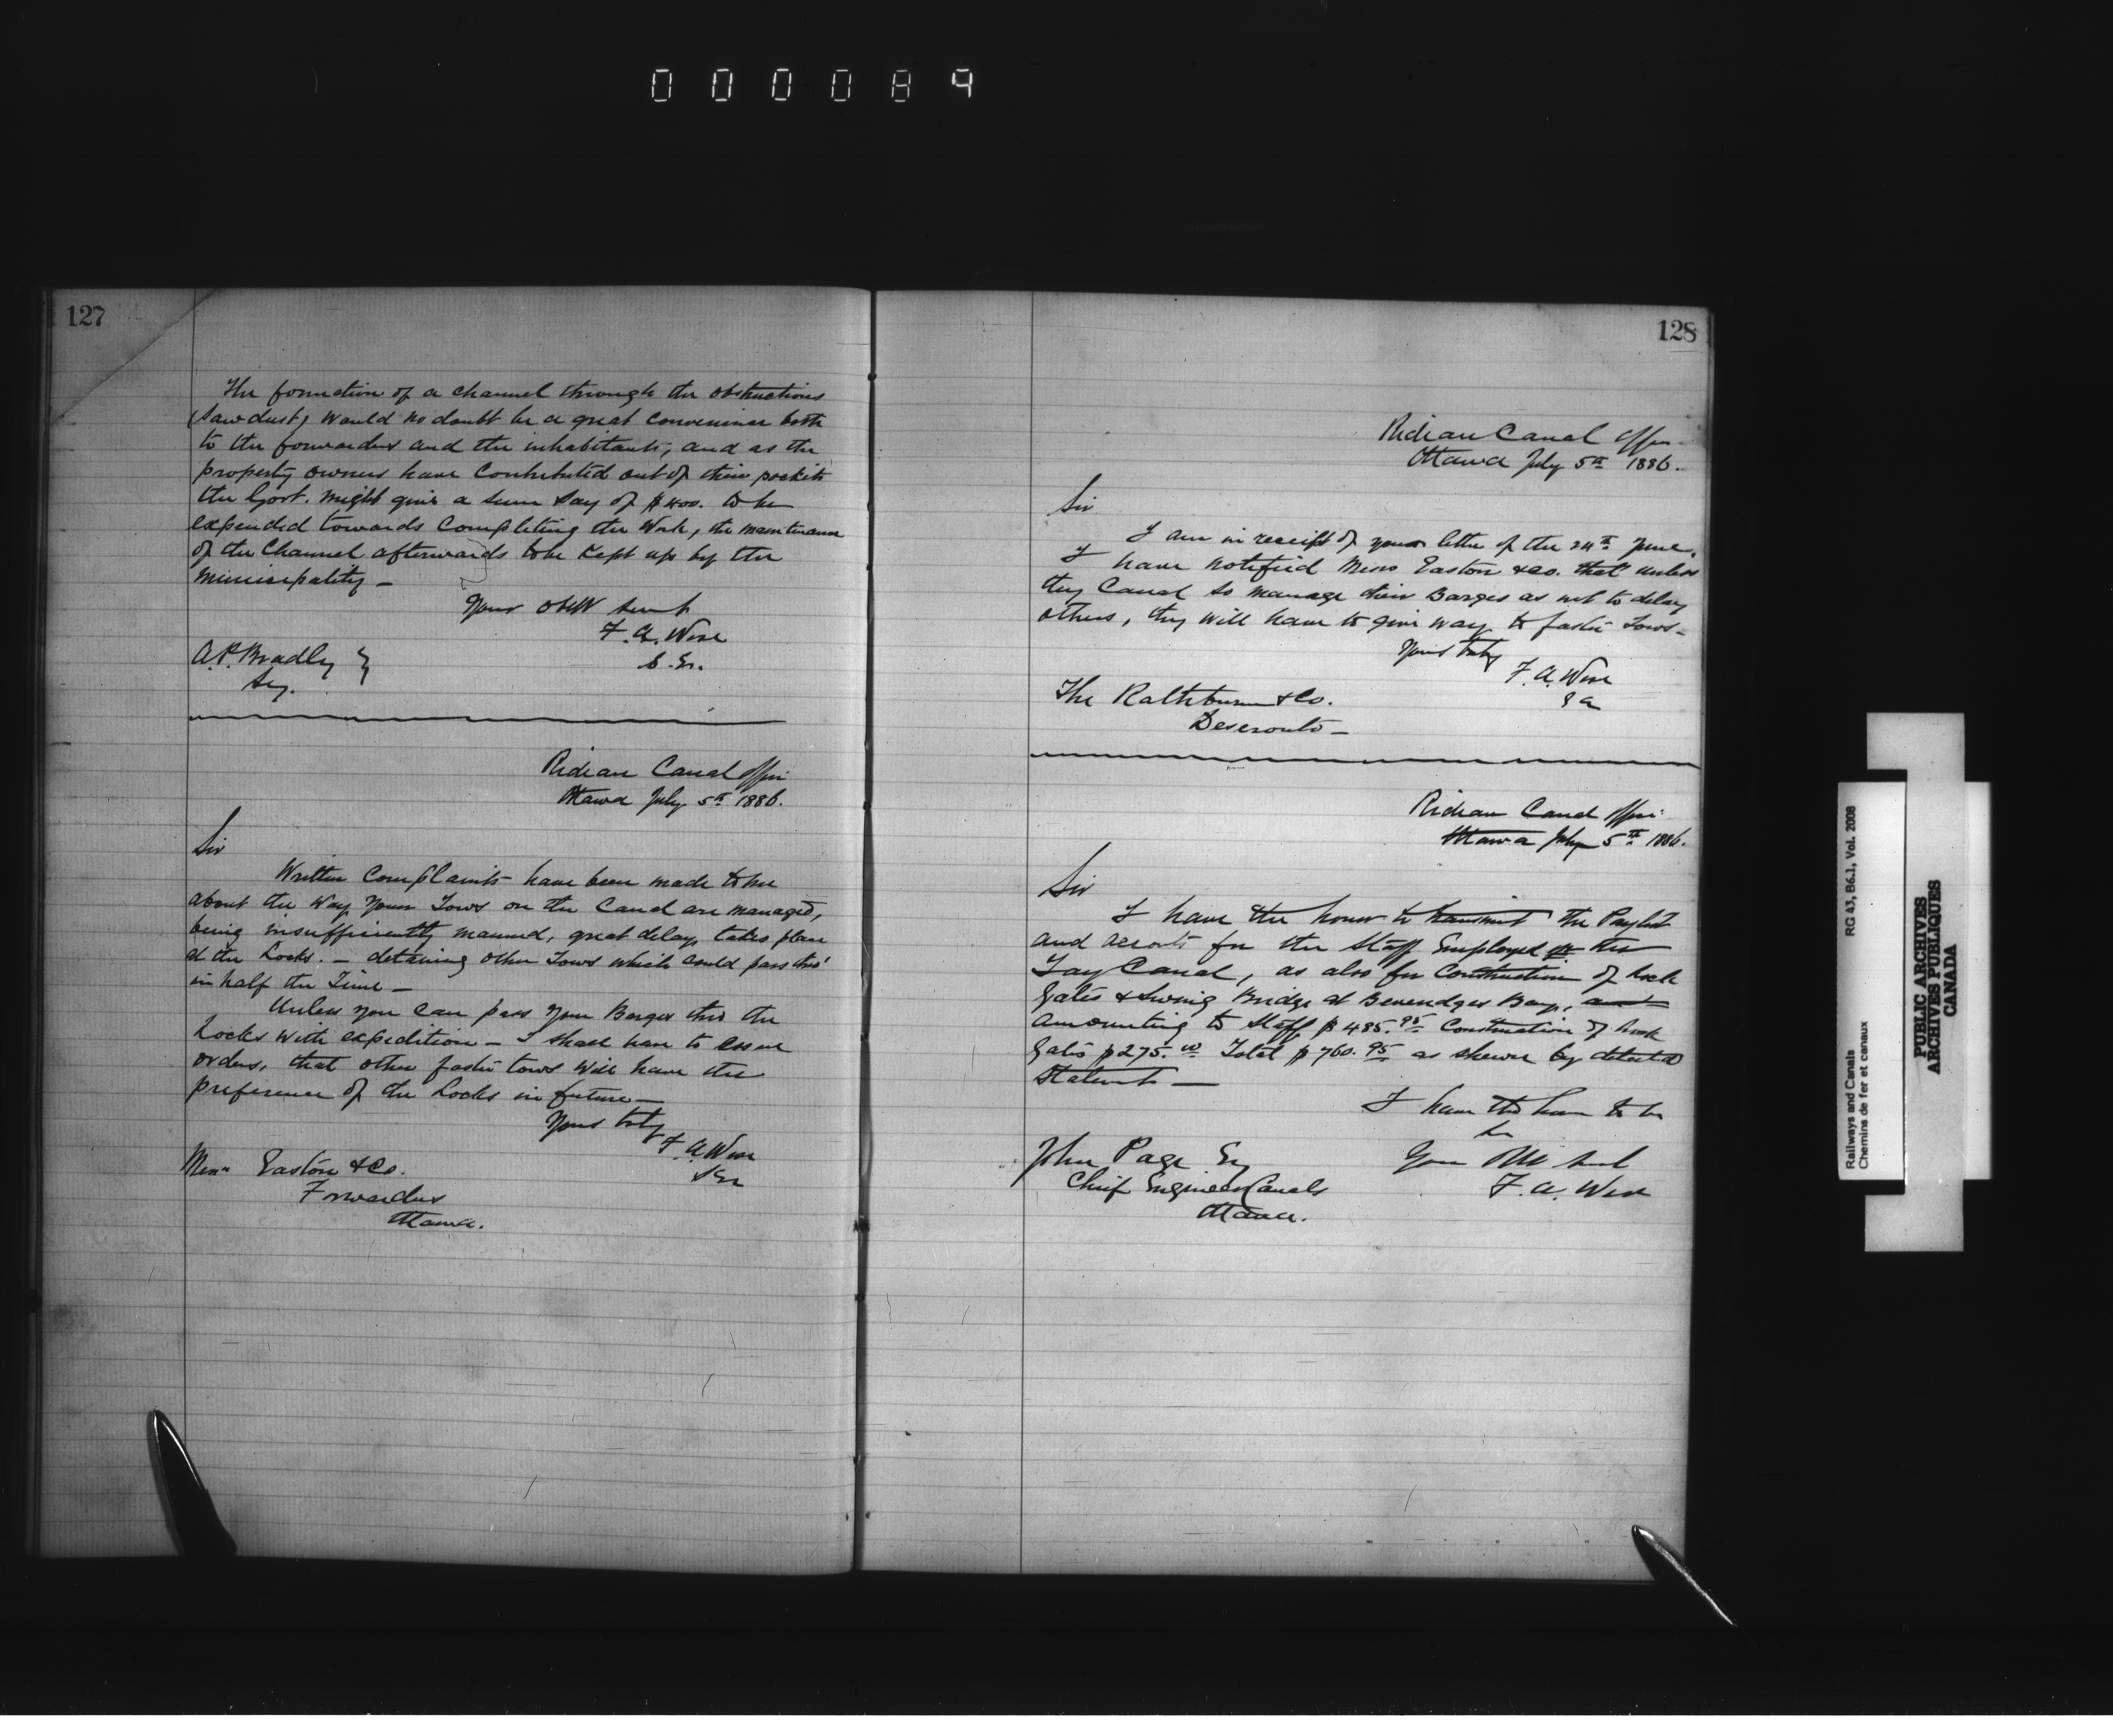 000089
127
The formation of a channel through the obstructions
(Sawdust) would no doubt be a great convenience both
to the forwarders and the inhabitants, and as the
property owners have contributed out of their pockets
the Govt. might give a sum say of $400. to be
expended towards Completing the Work, the maintenance
of the Channel afterwards to be Kept up by the
Municipality —
Your obdt servt
F. A. Wise
A. P. Bradley
Sey.
Rideau Canal Office
Ottawa July 5th 1886.
Sir
Written Complaints have been made to me
about the Way Your Tows on the Canal are managed,
being insufficiently manned, great delay takes place
at the Locks. — detaining other Tows which could pass thro'
in half the Time —
Unless you can pass your Barges thro the
Locks with expedition — I shall have to issue
orders, that other faster tows will have the
preference of the Locks in future —
Yours truly
F. A. Wise
Messrs Easton & Co.
Forwarders
Ottawa.
128
Rideau Canal Office
Ottawa July 5th 1886.
Sir
I am in receipt of your letter of the 24th June.
I have notified Messrs Easton & Co. that unless
they Canal so manage their Barges as not to delay
others, they will have to give way to faster Tows —
Yours truly
F. A. Wise
The Rathbun & Co.
Deseronto —
Rideau Canal Office
Ottawa July 5th 1886.
Sir
I have the honor to transmit the Paylist
and accounts for the Staff Employed the
Tay Canal, as also for Construction of Lock
Gates & Swing Bridge at Beveridges Bay, and
amounting to Staff $485.95 Construction of Lock
Gates $275.00 Total $760.95 as shewn by detailed
Statement —
I have the honor to be
Sir
Your Obdt Servt
F. A. Wise
John Page Esq
Chief Engineer Canals
Ottawa.
Railways and Canals RG 43, B6.1, Vol. 2008
Chemins de fer et canaux
PUBLIC ARCHIVES
ARCHIVES PUBLIQUES
CANADA